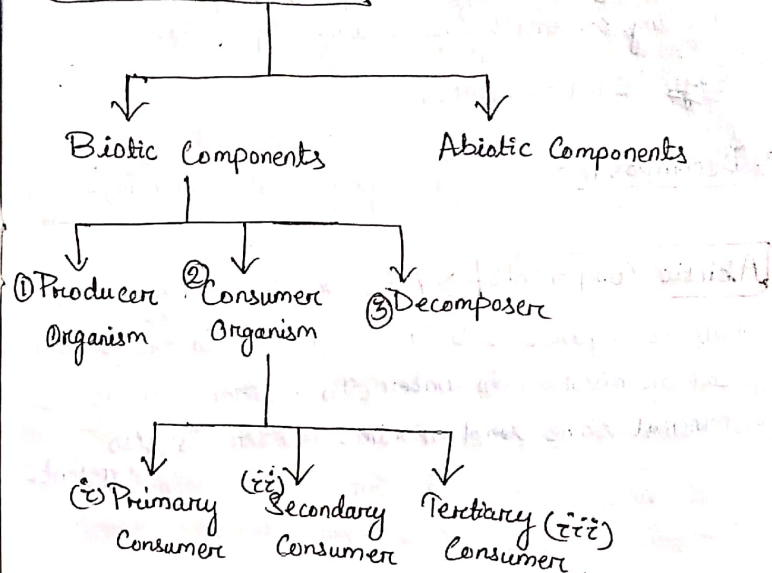 Biotic Components
Abiotic Components
① Producer
Organism
② Consumer
Organism
③ Decomposer
(i) Primary
Consumer
(ii) Secondary
Consumer
Tertiary (iii)
Consumer